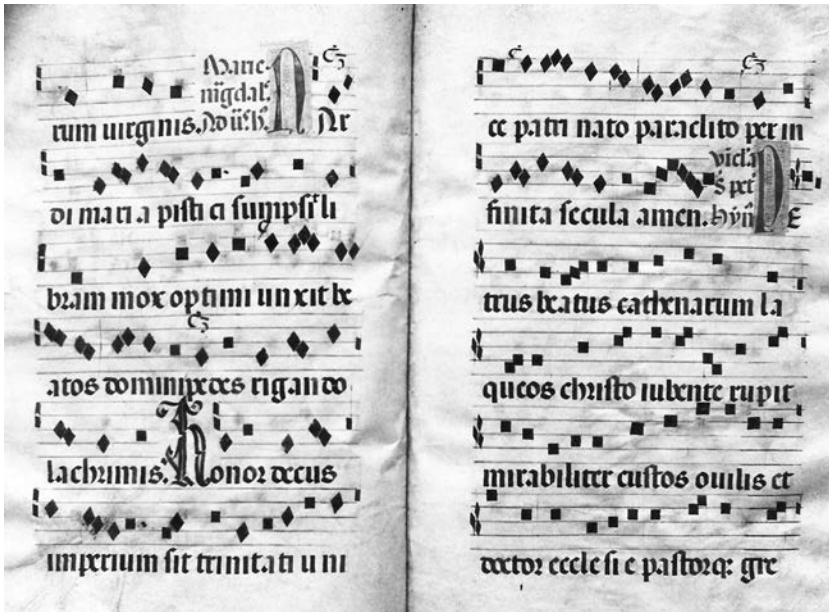 rum uirginis. Marie
magdal.
Ad ii. h. N Ar
di mari a pisti ci sumpsit li
bram mox optimi un xit be
atos domini pedes rigando
lachrimis. Honor decus
imperium sit trinitati u ni
ce patri nato paraclito per in
finita secula amen. vicla
s. pet
hyn P E
trus beatus cathenarum la
queos christo iubente rupit
mirabiliter custos ouilis et
doctor eccle si e pastorq: gre